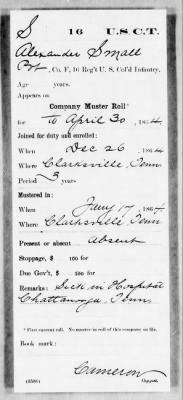 S | 16 | U.S.C.T.
Alexander Small
Pvt, Co. F, 16 Reg't U. S. Col'd Infantry.
Age years.
Appears on
Company Muster Roll*
for to April 30, 1864
Joined for duty and enrolled:
When Dec 26, 1864
Where Clarksville, Tenn
Period 3 years
Mustered in:
When Jany 17, 1864
Where Clarksville, Tenn
Present or absent Absent
Stoppage, $ 100 for
Due Gov't, $ 100 for
Remarks: Sick in Hospital
Chattanooga, Tenn.
* First enrolled roll. No muster-in roll of this company on file.
Book mark:
Cameron
(358b) Copyist.